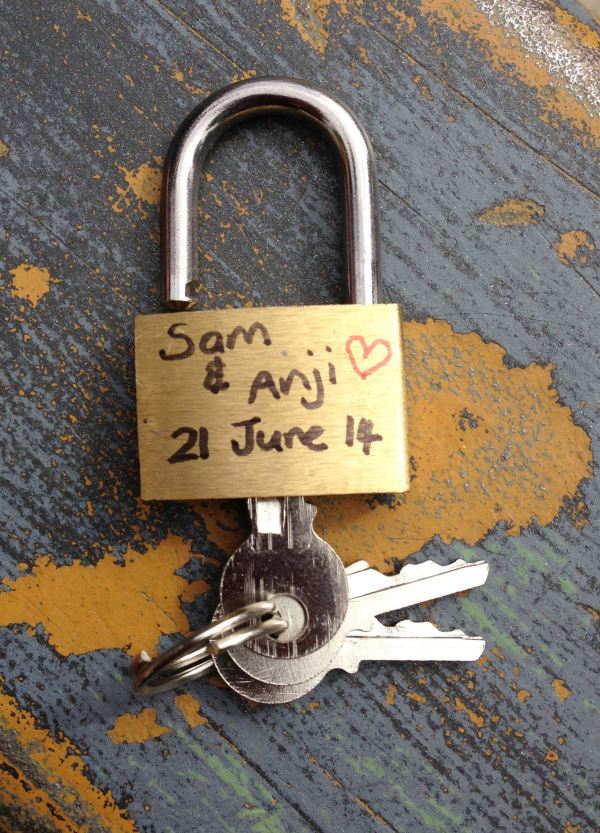 Sam
& Anji
21 June 14